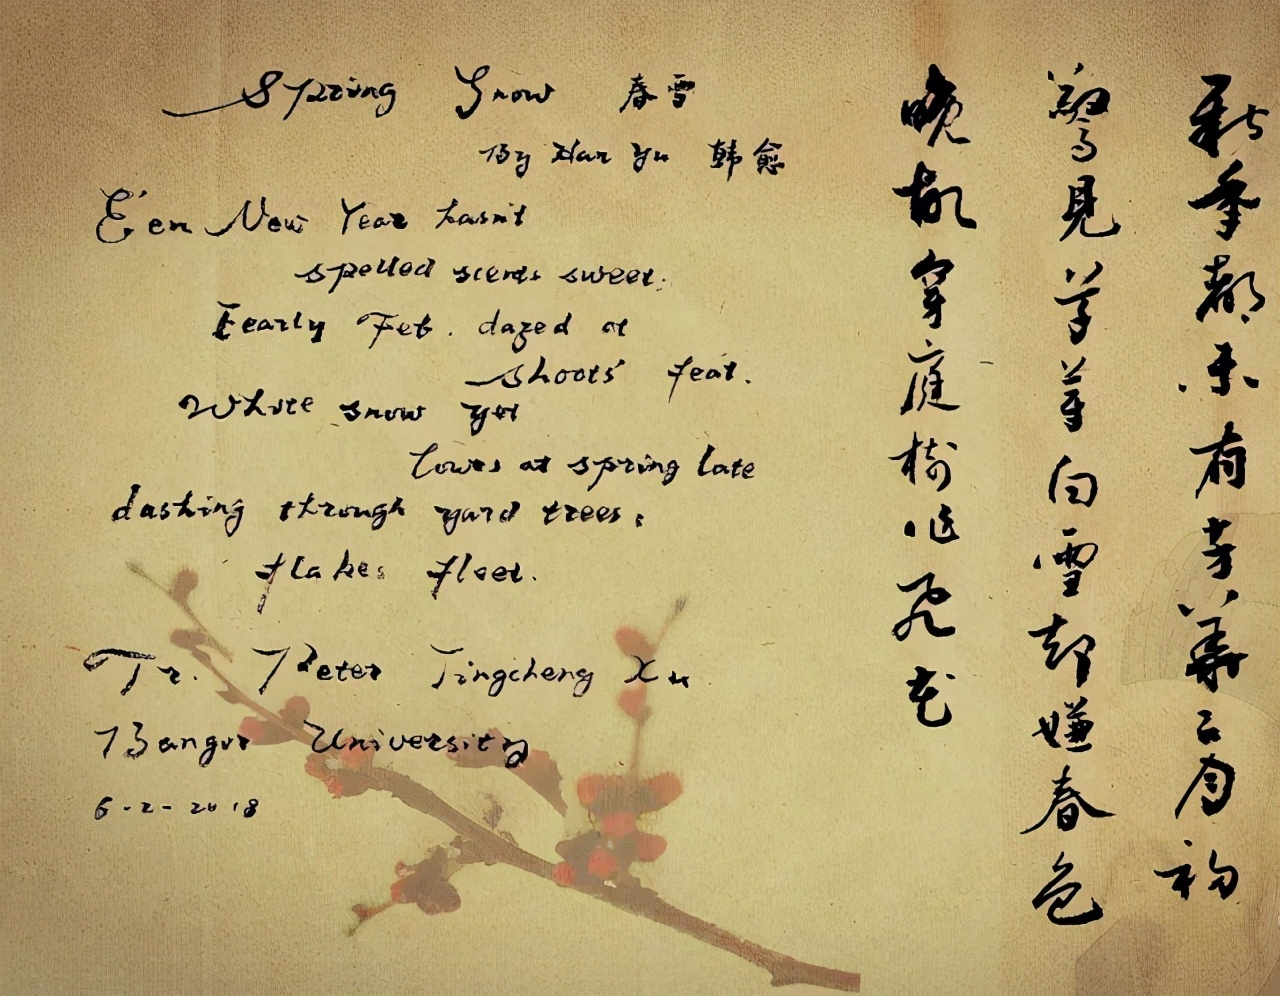 Spring Snow 春雪
By Han Yu 韩愈
E'en New Year hasn't
spelled scents sweet.
Eearly Feb. dazed at
shoots' feat.
White snow yet
lours at spring late
dashing through yard trees,
flakes fleet.
Tr. Peter Jingcheng Xu
Bangor University
6-2-2018
新年都未有芳華二月初
驚見草芽白雪却嫌春色
晚故穿庭樹作飛花